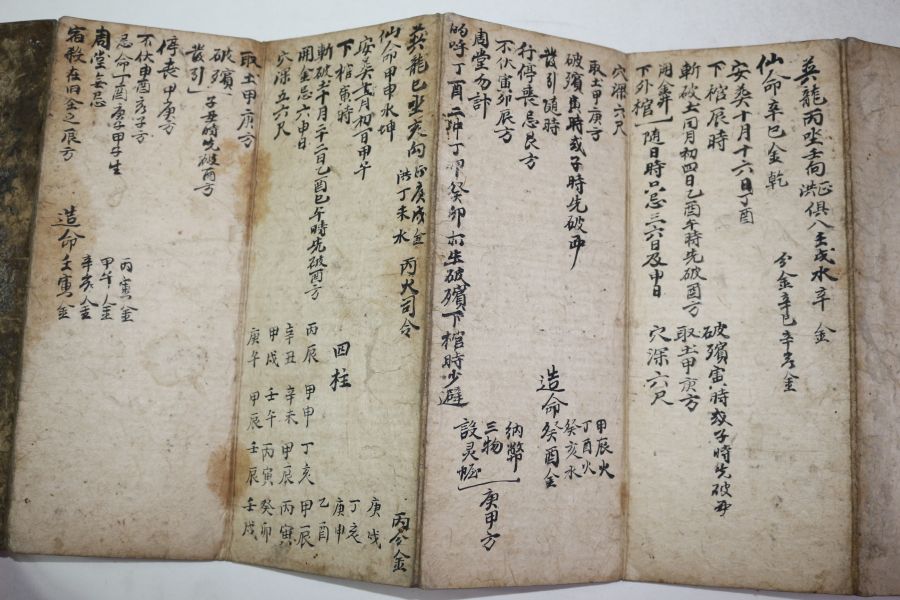 葬龍丙坐壬向 正洪俱八壬戌水 辛金
仙命辛巳金乾 分金辛巳辛亥金
安葬十月十六日丁酉
下棺辰時
斬破土同月初四日乙酉午時先破酉方
開金井
下外棺 隨日時只忌三六日及申日
破殯寅時或子時先破卯
取土甲庚方
穴深六尺
穴深六尺
取土甲庚方
破殯寅時或子時先破卯
發引隨時
行停喪忌艮方
不伏寅卯辰方
周堂勿計
的呼丁酉二冲丁卯癸卯 生破殯下棺時少避
造命 甲辰火
丁酉火
癸亥水
癸酉金
納幣
三物
設灵幄 庚甲方
葬龍巳坐亥向 正庚戌金 洪丁未水 丙火司令 丙分金
仙命甲申水坤
安葬 月初一日甲午
下棺寅時
斬破土十月二十二日乙酉巳午時先破酉方
開金忌六申日
穴深五六尺
四柱
庚戌
丁亥 丁亥
庚申 甲申
乙酉
丙辰 甲辰 甲辰
辛丑 辛未 丙寅 丙寅
甲戌 壬午 癸卯
庚午 甲辰 壬辰 壬戌
取土甲庚方
破殯
發引 子丑時先破酉方
停喪甲庚方
不伏申酉亥子方
忌命丁酉庚子甲子生
周堂無忌
宿殺在旧金之辰方
造命 丙寅金
甲午金
辛亥金
壬寅金